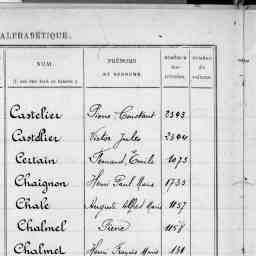 ALPHABÉTIQUE.
NOM. PRÉNOMS ET SURNOMS. NUMÉROS NUMÉRO du volume.
Castelier Pierre-Constant 2393
Castellier Victor Jules 2394
Certain Fernand, Émile 1073
Chaignon Henri Paul Marie 1733
Chale Auguste Alfred Marie 1157
Chalmel Pierre 1158
Chalmet Henri François Marie 131